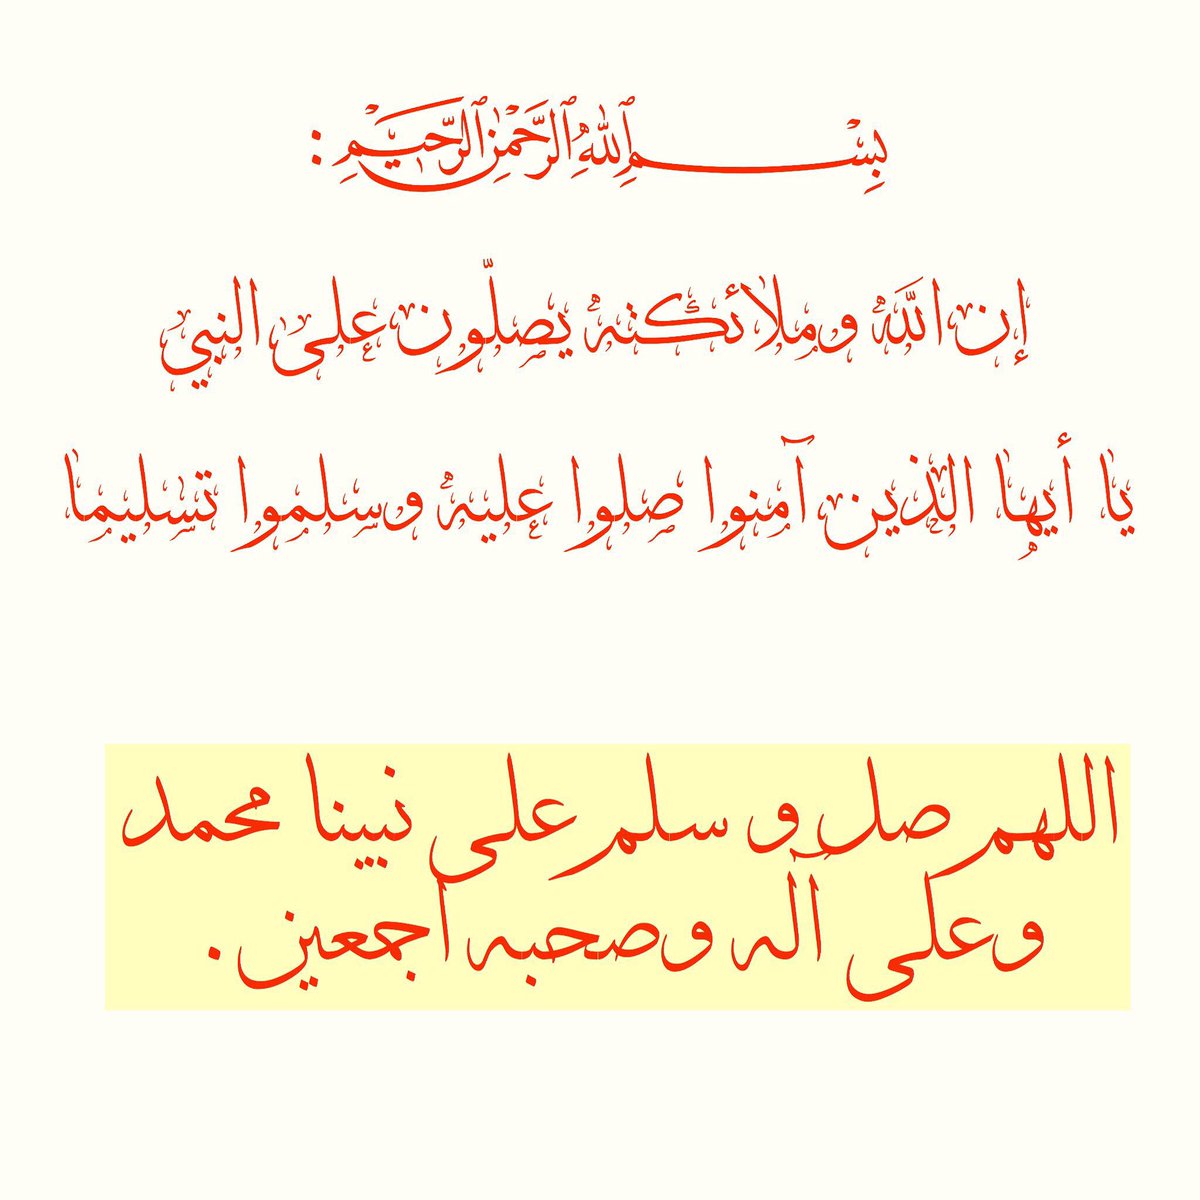 بِسْمِ ٱللَّهِ ٱلرَّحْمَٰنِ ٱلرَّحِيمِ :
إن اللَّه وملائكته يصلّون على النبي
يا أيها الذين آمنوا صلوا عليه وسلموا تسليما
اللهم صل و سلم على نبينا محمد
وعلى آله وصحبه أجمعين .